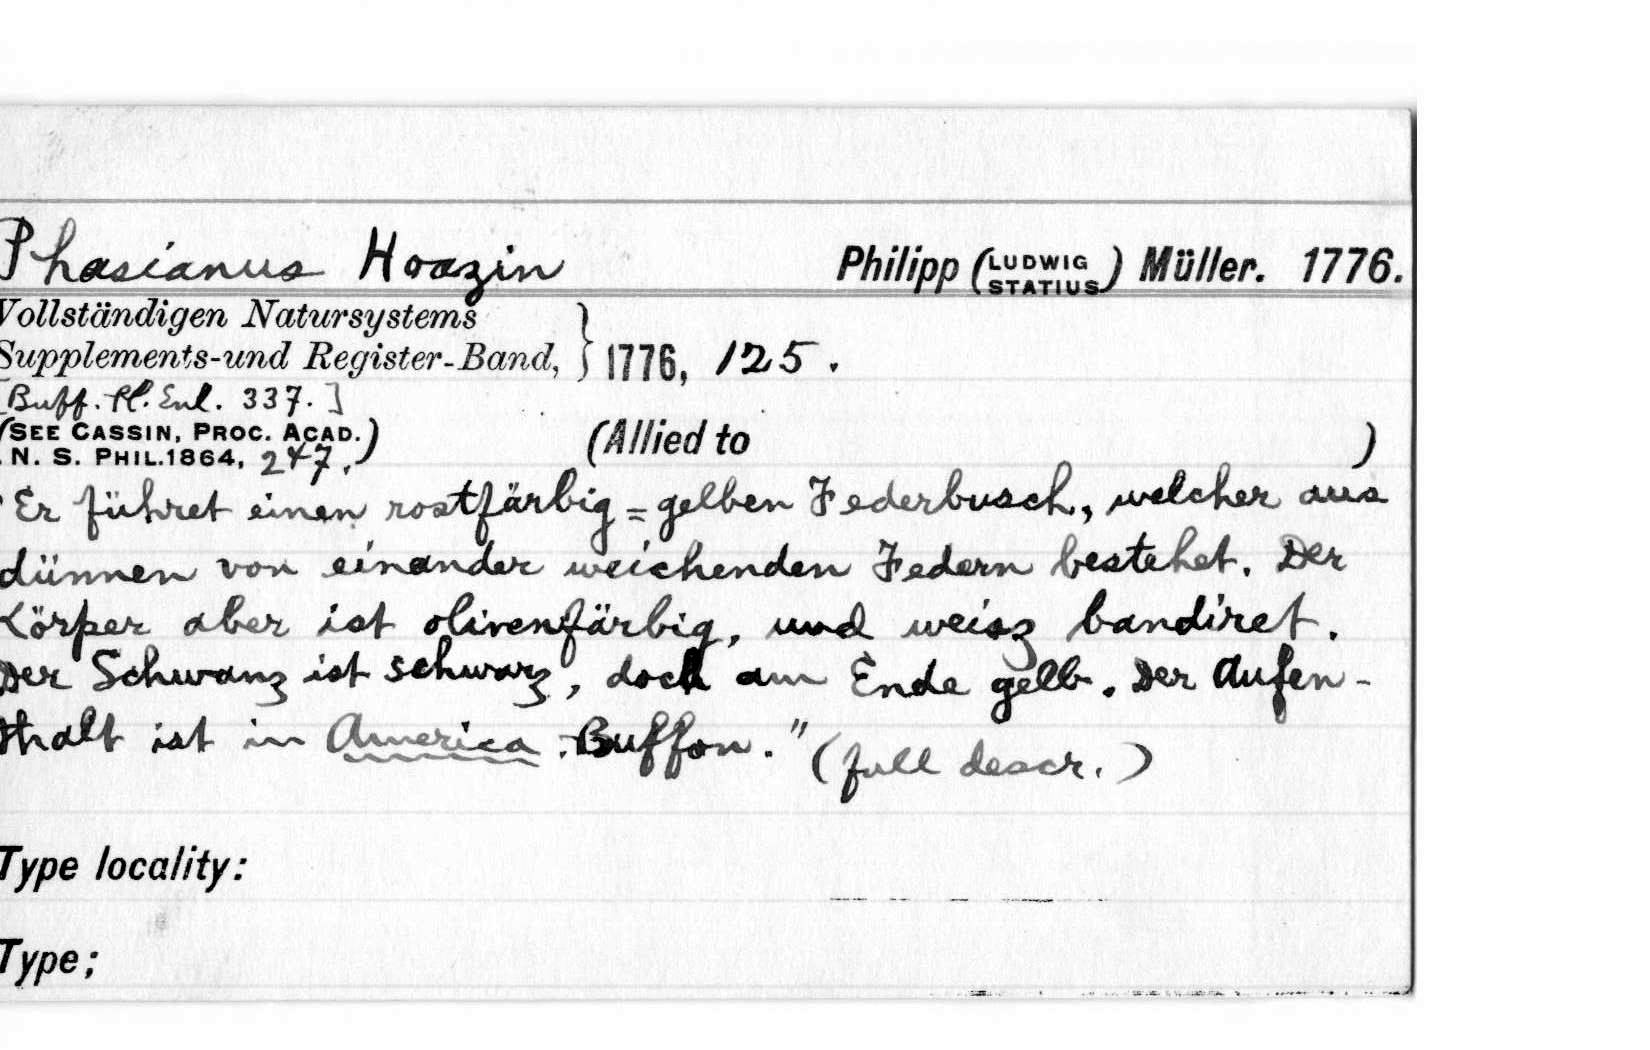 Phasianus Hoazin Philipp (LUDWIG STATIUS) Müller. 1776.
Vollständigen Natursystems
Supplements-und Register-Band, } 1776, 125.
[Buff. Pl. Enl. 337.]
(SEE CASSIN, PROC. ACAD. (Allied to )
N. S. PHIL. 1864, 247.)
"Er führet einen rostfärbig = gelben Federbusch, welcher aus
dünnen von einander weichenden Federn bestehet. Der
Körper aber ist olivenfärbig, und weisz bandiret.
Der Schwanz ist schwarz, doch am Ende gelb. Der Aufen-
thalt ist in America. Buffon." (full descr.)
Type locality:
Type;